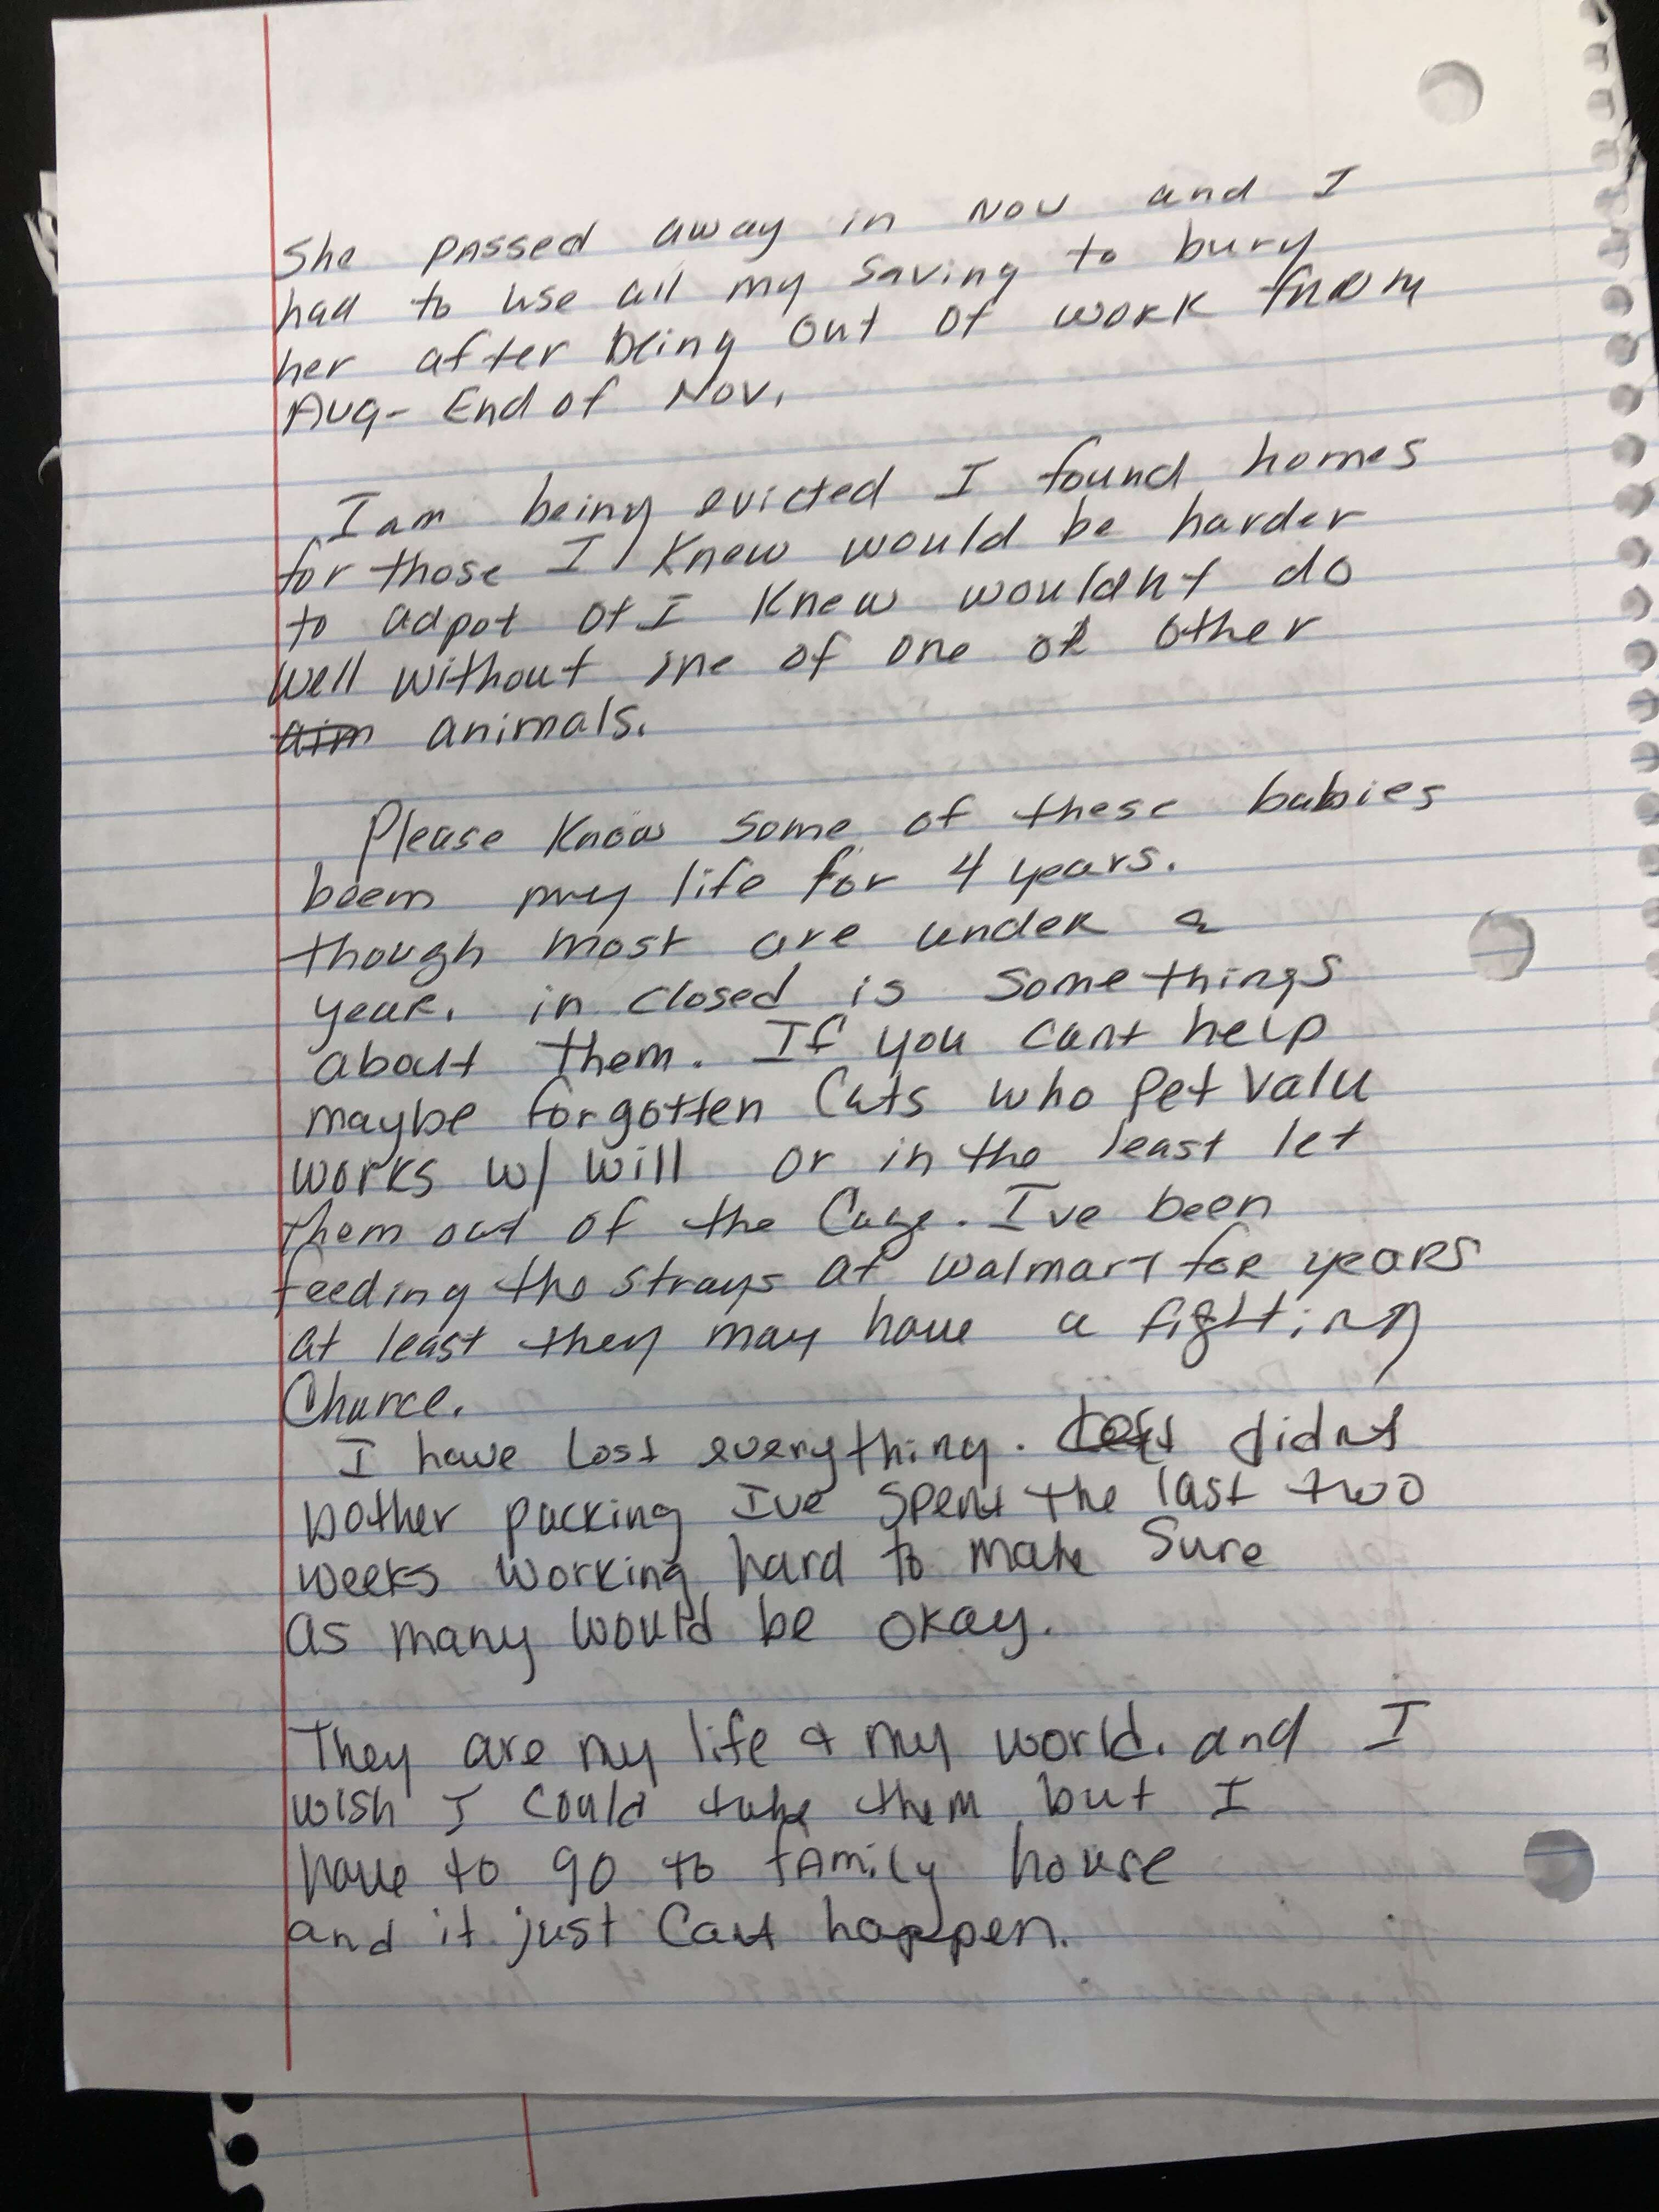 She passed away in Nov and I
had to use all my saving to bury
her after being out of work from
Aug- End of Nov.
I am being evicted I found homes
for those I knew would be harder
to adpot of I knew wouldnt do
well without me of one or other
aim animals.
Please know some of these babies
beem my life for 4 years.
though most are under a
year. in closed is some things
about them. If you cant help
maybe forgotten Cats who Pet Valu
works w/ will or in the least let
them out of the Cage. I've been
feeding the strays at walmart for years
at least they may have a fighting
Chance.
I have lost everything. didnt
bother packing Ive spent the last two
weeks working hard to make Sure
as many would be okay.
They are my life & my world. and I
wish I could take them but I
have to go to family house
and it just Cant happen.